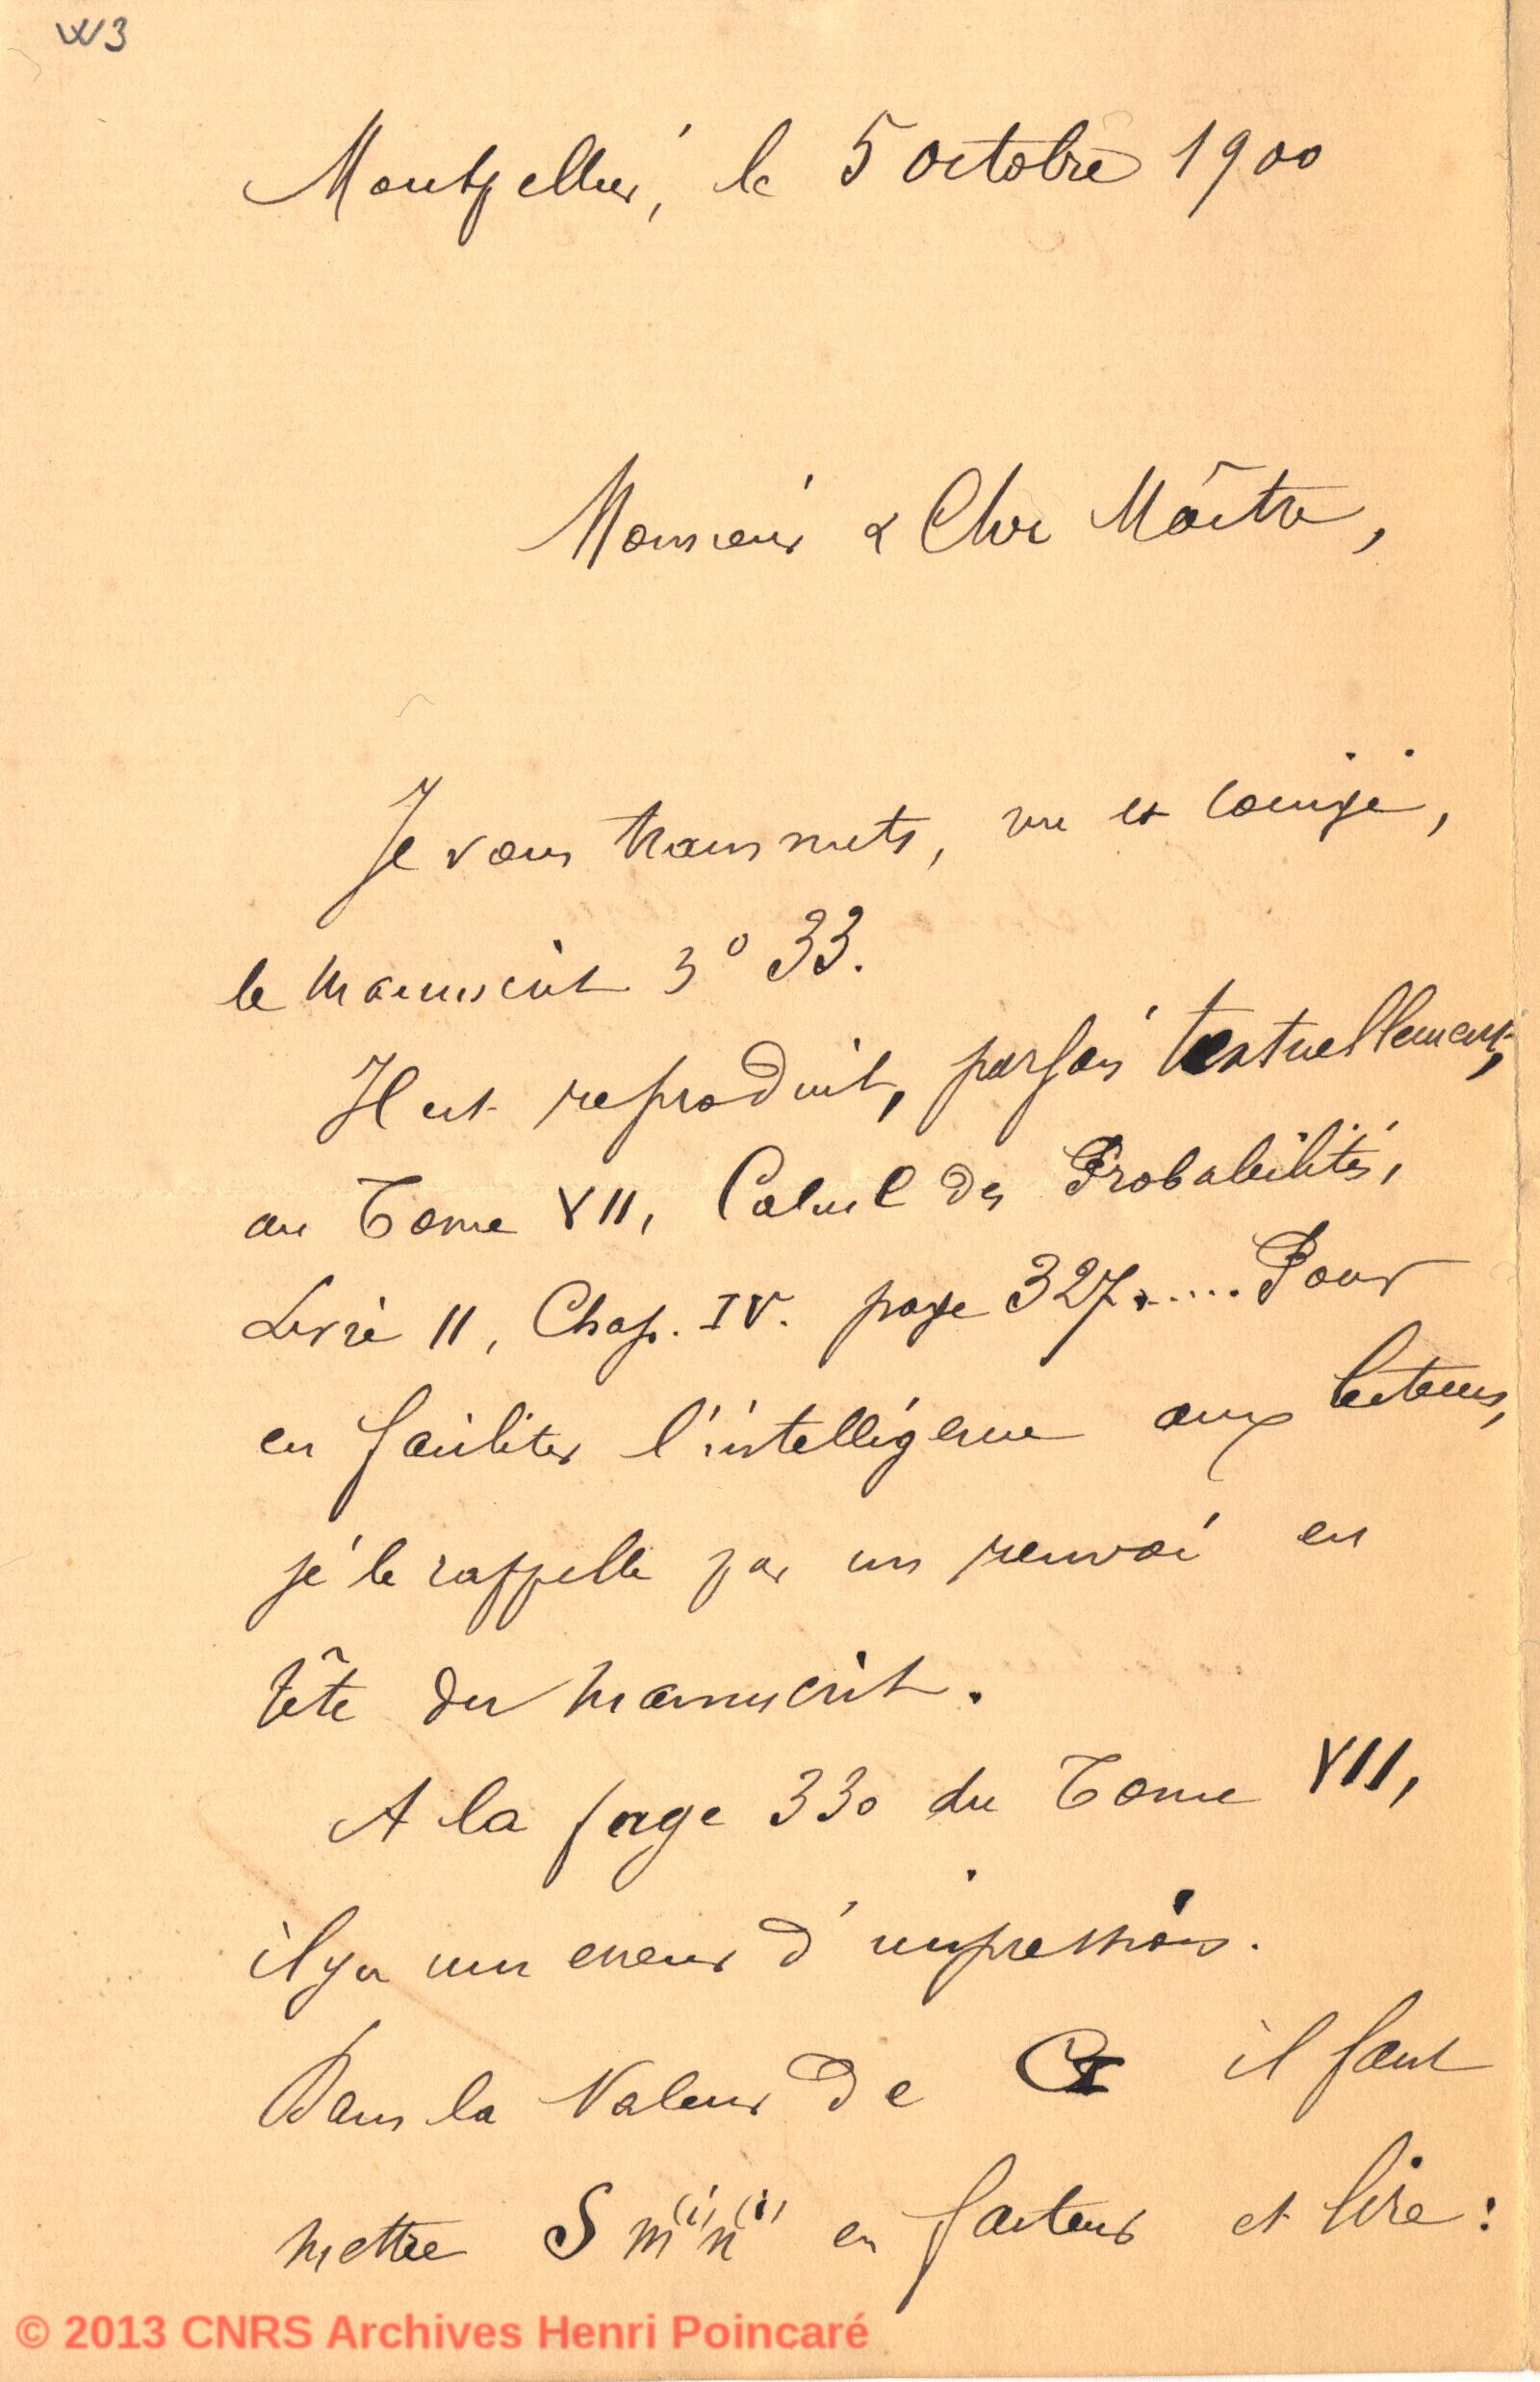 W3
Montpellier, le 5 octobre 1900
Monsieur & Cher Maître,
Je vous transmets, vu et corrigé,
le manuscrit 3° 33.
Il est reproduit, parfois textuellement,
au Tome VII, Calcul des Probabilités,
Livre II, Chap. IV. page 327..... Pour
en faciliter l'intelligence aux lecteurs,
je le rappelle par un renvoi en
tête du manuscrit.
A la page 330 du Tome VII,
il y a une erreur d'impression.
Dans la valeur de il faut
mettre S m⁽ⁱ⁾n⁽ⁱ⁾ en facteur et lire :
© 2013 CNRS Archives Henri Poincaré